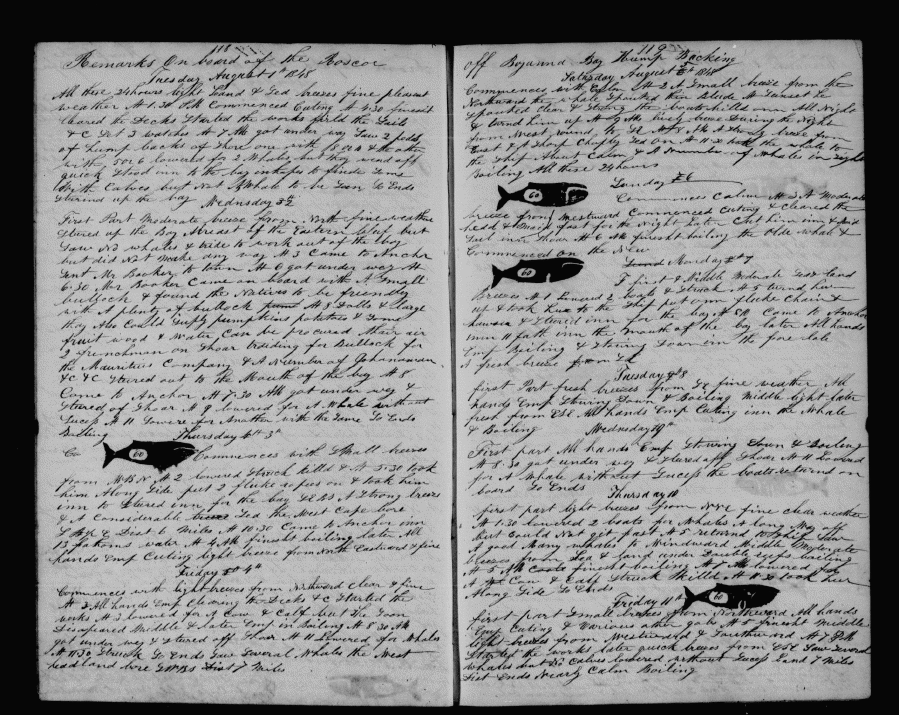 118
Remarks On board of the Roscoe
Tuesday August 1st 1848
All these 24 hours light Land & Sea breezes fine pleasant
weather At 1.30 PM Commenced Cuting At 4.30 finisht
Cleared the Decks Started the works furld the Sails
& C Set 3 watches At 7 AM got under way Saw 2 pods
of hump backs of Shore one with 8 or & the other
with 5 or 6 lowered for 2 Whales but they went off
quick Stood inn to the bay inhopes to finde Some
With Calves but Not A Whale to be Seen So Ends
Stering up the bay
Wednsday 2
First Part Moderate breeze from North fine weather
Stered up the Bay Abreast of the Eastern bluf but
Saw No whales & tride to work out of the bay
but did Not make any way At 3 Came to Anchr
Sent Mr Booker to town At 6 got under way At
6.30 Mr Booker Came on board with A Small
bullock & found the Natives to be friendly
with A plenty of bullock At 8 Dolls & large
thay Also Could Suply pumpkins potatoes & Some
fruit wood & Water Can be procured thair air
2 frenchman on Shoar trading for Bullock for
the Mauritius Company & A Number of Johanaman
& C & C Stered out to the Mouth of the bay At 8
Come to Anchor At 7.30 AM got under way &
Stered of Shoar At 9 lowered for A Whale without
Sucess At 11 lowere for Another with the Same So Ends
Boiling
Thursday 3
60
Commences with Small breeses
from At 2 lowered Struck kills & At 5.30 took
him Along Side put a fluke rope on & took him
inn to Stered inn for the bay At A Strong breeze
& A Considerable Sea the West Cape bore
Dist 6 Miles At 10.30 Came to Anchor inn
13 fathoms water At 4 AM finisht boiling later All
hands Emp Cutting light breeze from North Eastward & fine
Friday 4th
Commences with light breezes from Northward Clear & fine
At 3 All hands Emp Clearing the Decks & C Started the
works At 3 lowered for A Cow & Calf but The Soon
Disapeared Middle & later Emp in Boiling At 8.30 AM
got under way & Stered off Shoar At 11 lowered for Whales
At 11.30 Struck So Ends Saw Several Whales the West
head land bore Dist 7 Miles
119
off Boyanna Bay Hump Backing
Saturday August 5th 1848
Commences with Calm At 2 A Small braze from the
Northward the whale Spouted thin Bluds At Sunset he
Spouted Clear & Strong the boats kills him All Right
& turnd him up At 9 PM lively breze During the Night
from West round to At 8 AM A Strong breeze from
East & A Sharp Chopty Sea On At 11.30 took the whale to
the Ship About Calm & A Number of Whales in Sight
Boiling All these 24 hours
Sunday 6
60
Commences Calm At 3 A Moderate
breeze from Westward Commenced Cuting & Cleared the
head & made fast for the Night later Cut him inn &
Sail inn Shoar At 6 AM finisht boiling the Olde Whale &
Commenced on the New
Monday 7
60
First & Middle Moderate Sea & Land
Breezes At 1 lowered 2 boats & Struck At 5 turnd him
up & took him to the Ship put on fluke Chain &
hawser & Stered inn for the bay At 8 PM Come to Anchor
inn 11 fath inn the Mouth of the bay later All hands
Emp Boiling & Stowing Down in the fore late
A fresh breeze from
Tuesday 8
first Part fresh breezes from fine weather All
hands Emp Stowing Down & Boiling Middle light later
fresh from ESE All hands Emp Cuting inn the Whale
& Boiling
Wednesday 9th
First part All hands Emp Stowing Down & Boiling
At 8.30 got under way & Stered off Shoar At 11 lowered
for A Whale without Sucess the boats returned on
board So Ends
Thursday 10
first part light breezes from fine clear weather
At 1.30 lowered 2 boats for Whales A long Way off
but Could Not get fast At 5 returnd to Ship Saw
A good Many whales to Windward Middle Moderate
breezes from Sea & land under Double reefs boiling
At 5 AM finisht boiling At 7 AM lowered for
A Cow & Calf Struck & killd At 11.30 took her
Along Side So Ends
Friday 11th
60
first part Small breezes from Northward All hands
Emp Cuting & Various other jobs At 5 finisht Middle
light breezes from Westward & Southward At 7 PM
Started the works later quick breeze from ESE Saw Several
whales but No Calves lowered without Sucess Land 7 Miles
Dist Ends Nearly Calm Boiling